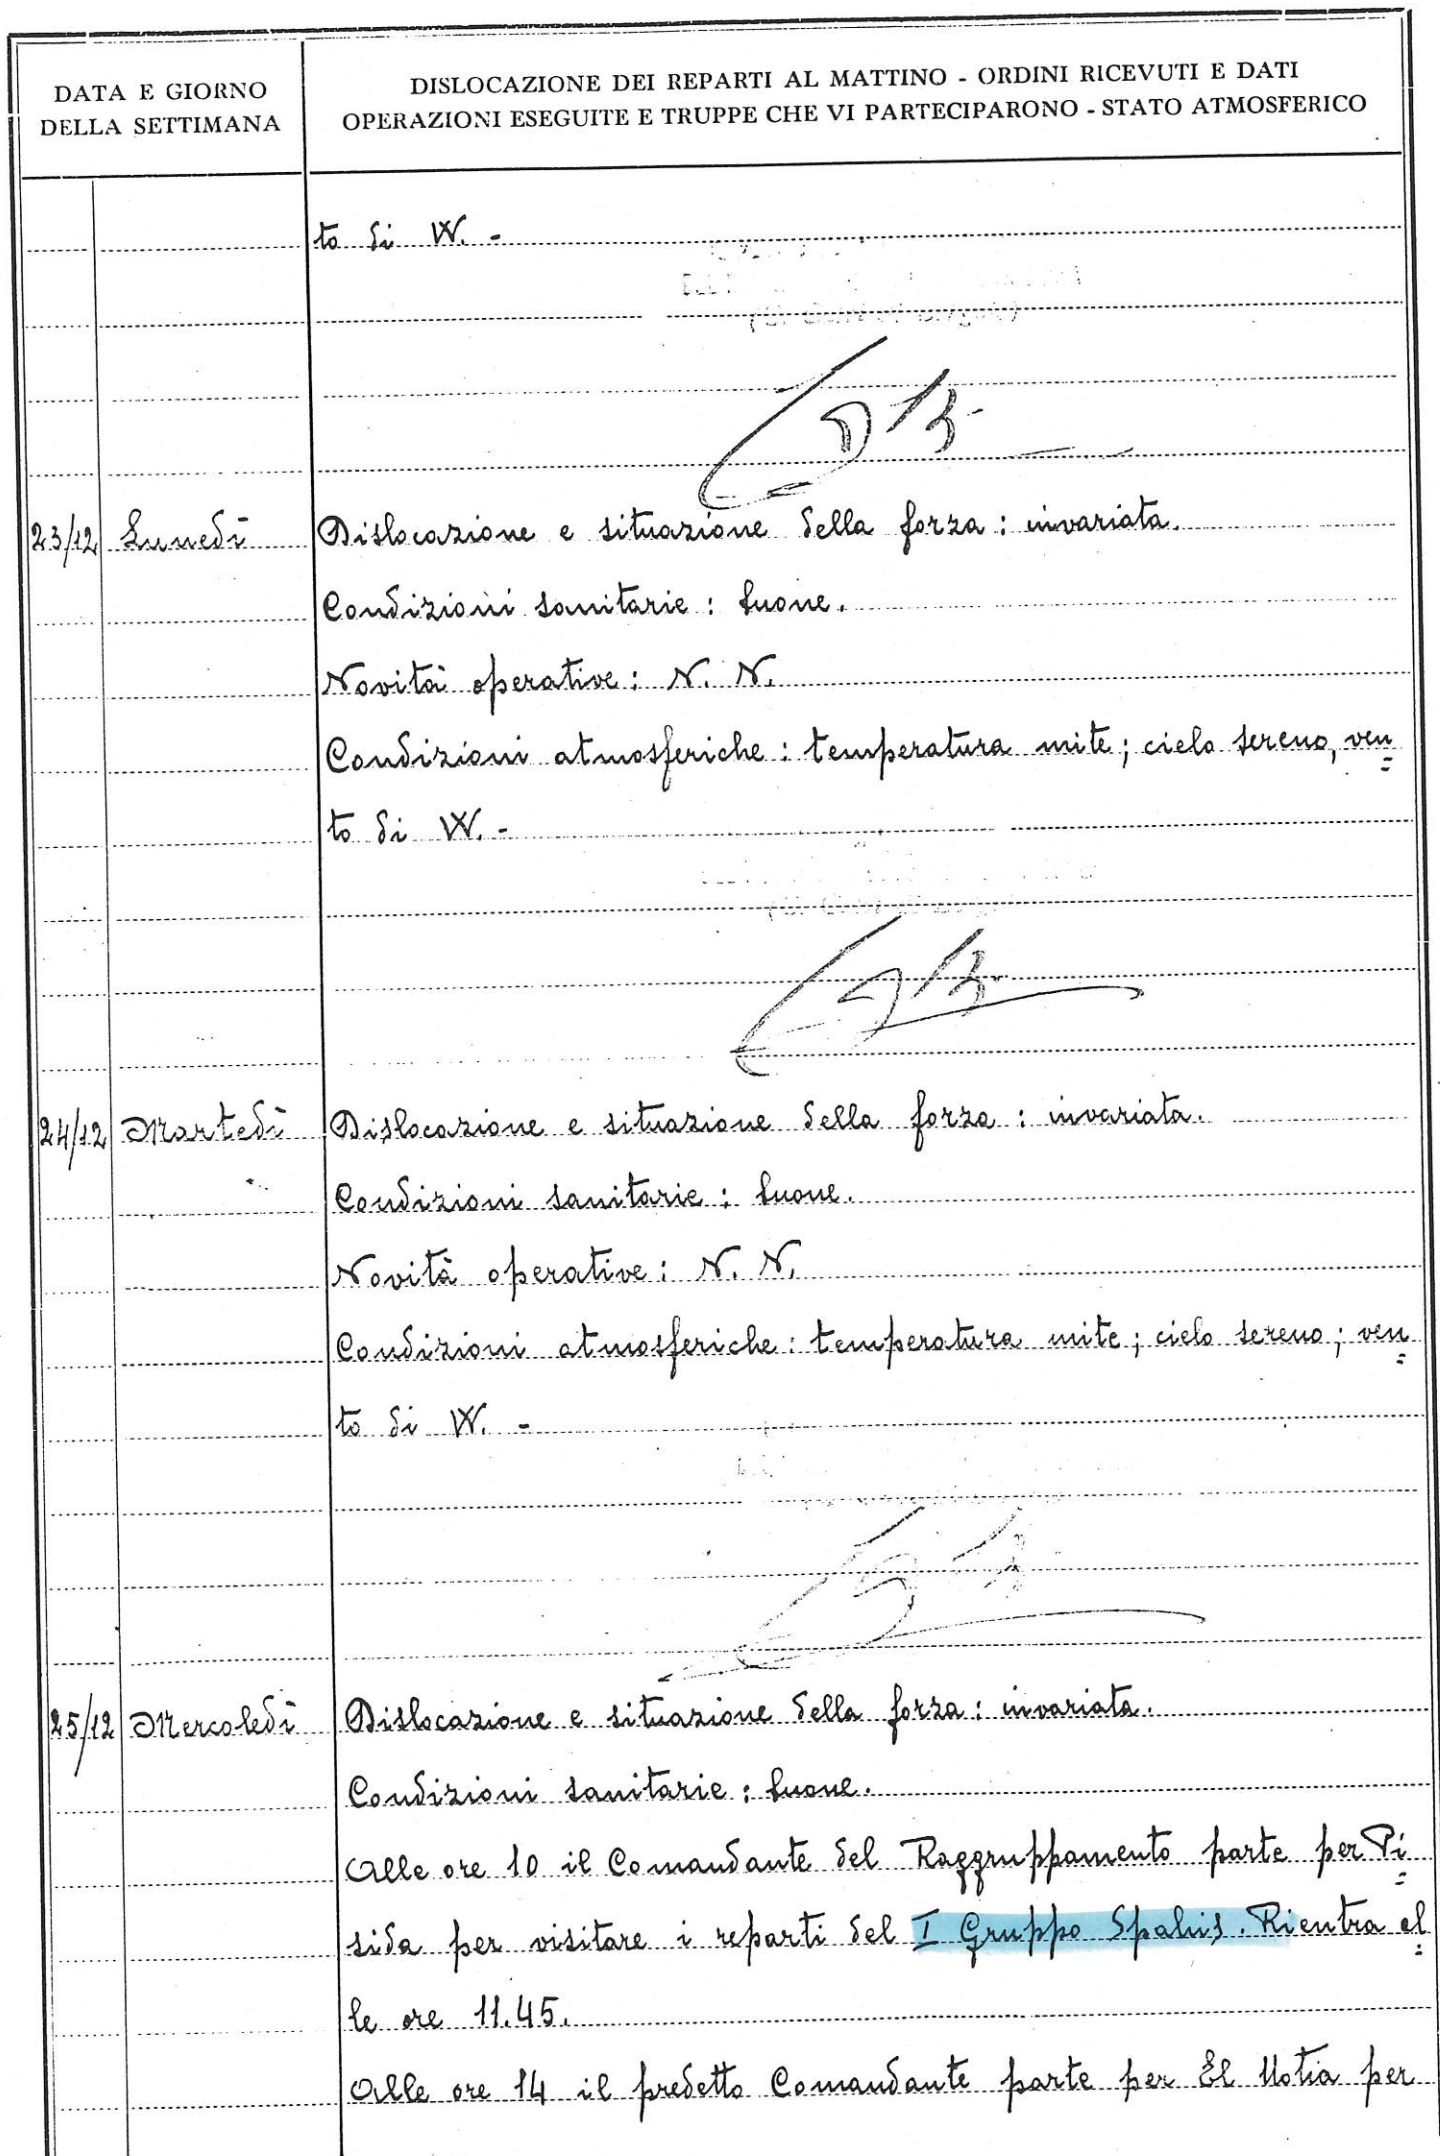 DATA E GIORNO
DELLA SETTIMANA
DISLOCAZIONE DEI REPARTI AL MATTINO - ORDINI RICEVUTI E DATI
OPERAZIONI ESEGUITE E TRUPPE CHE VI PARTECIPARONO - STATO ATMOSFERICO
to di W. -
23/12 Lunedì Dislocazione e situazione della forza : invariata.
Condizioni sanitarie : buone.
Novità operative : N. N.
Condizioni atmosferiche : temperatura mite ; cielo sereno, ven=
to di W. -
24/12 Martedì Dislocazione e situazione della forza : invariata.
Condizioni sanitarie : buone.
Novità operative : N. N.
Condizioni atmosferiche : temperatura mite ; cielo sereno ; ven=
to di W. -
25/12 Mercoledì Dislocazione e situazione della forza : invariata.
Condizioni sanitarie : buone.
Alle ore 10 il Comandante del Raggruppamento parte per Pi=
sida per visitare i reparti del I Gruppo Spahis. Rientra al=
le ore 11.45.
Alle ore 14 il predetto Comandante parte per El Uotia per